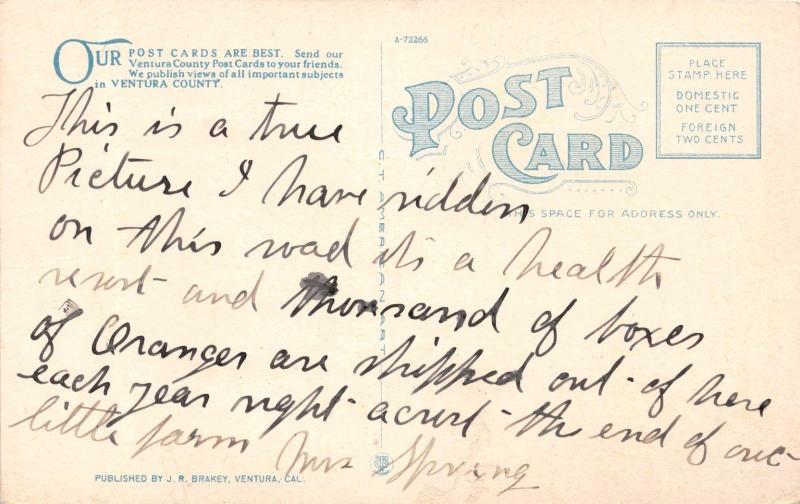 OUR POST CARDS ARE BEST. Send our
Ventura County Post Cards to your friends.
We publish views of all important subjects
in VENTURA COUNTY.
A-72265
POST
CARD
PLACE
STAMP HERE
DOMESTIC
ONE CENT
FOREIGN
TWO CENTS
THIS SPACE FOR ADDRESS ONLY.
C. T. AMERICAN ART
This is a true
Picture I have ridden
on this road its a health
resort and thousand of boxes
of Oranges are shipped out of here
each year right acrost the end of our
little farm Mrs Spring
PUBLISHED BY J. R. BRAKEY, VENTURA, CAL.